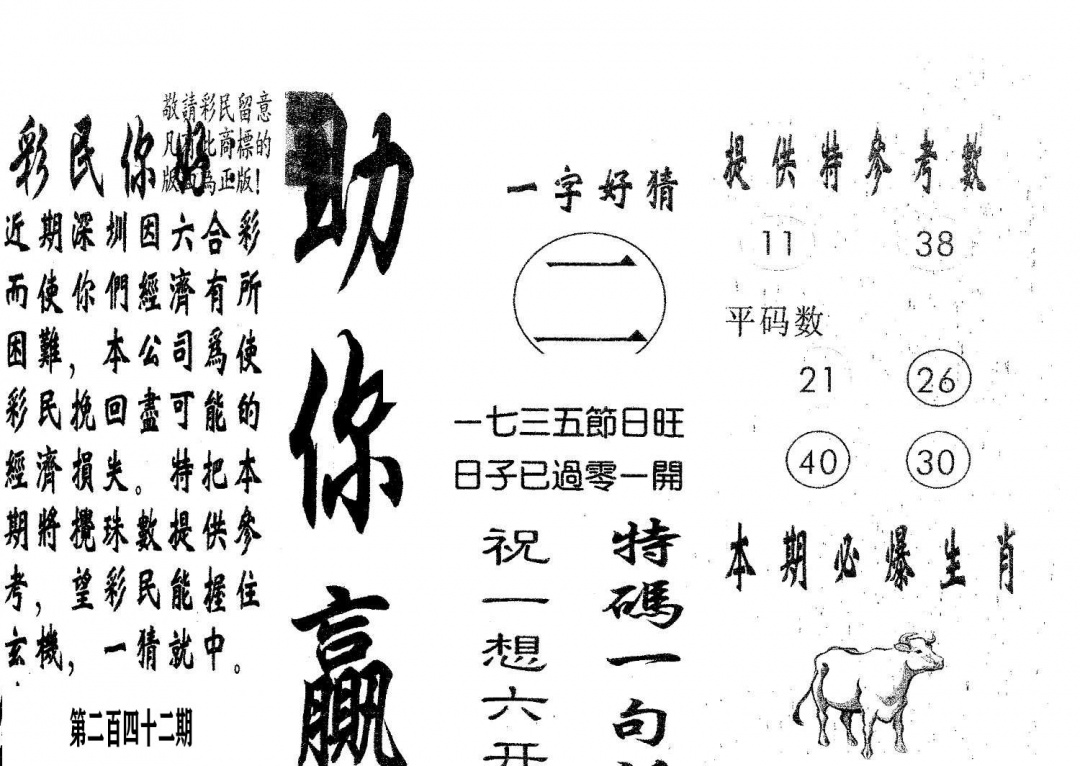 敬請彩民留意
凡有此商標的
版面為正版!
彩民你好
近期深圳因六合彩
而使你們經濟有所
困難，本公司爲使
彩民挽回盡可能的
經濟損失。特把本
期將攪珠數提供參
考，望彩民能握住
玄機，一猜就中。
第二百四十二期
助你贏
一字好猜
二
一七三五節日旺
日子已過零一開
特碼一句
祝一想六开
提供特參考數
11 38
平码数
21 26
40 30
本期必爆生肖